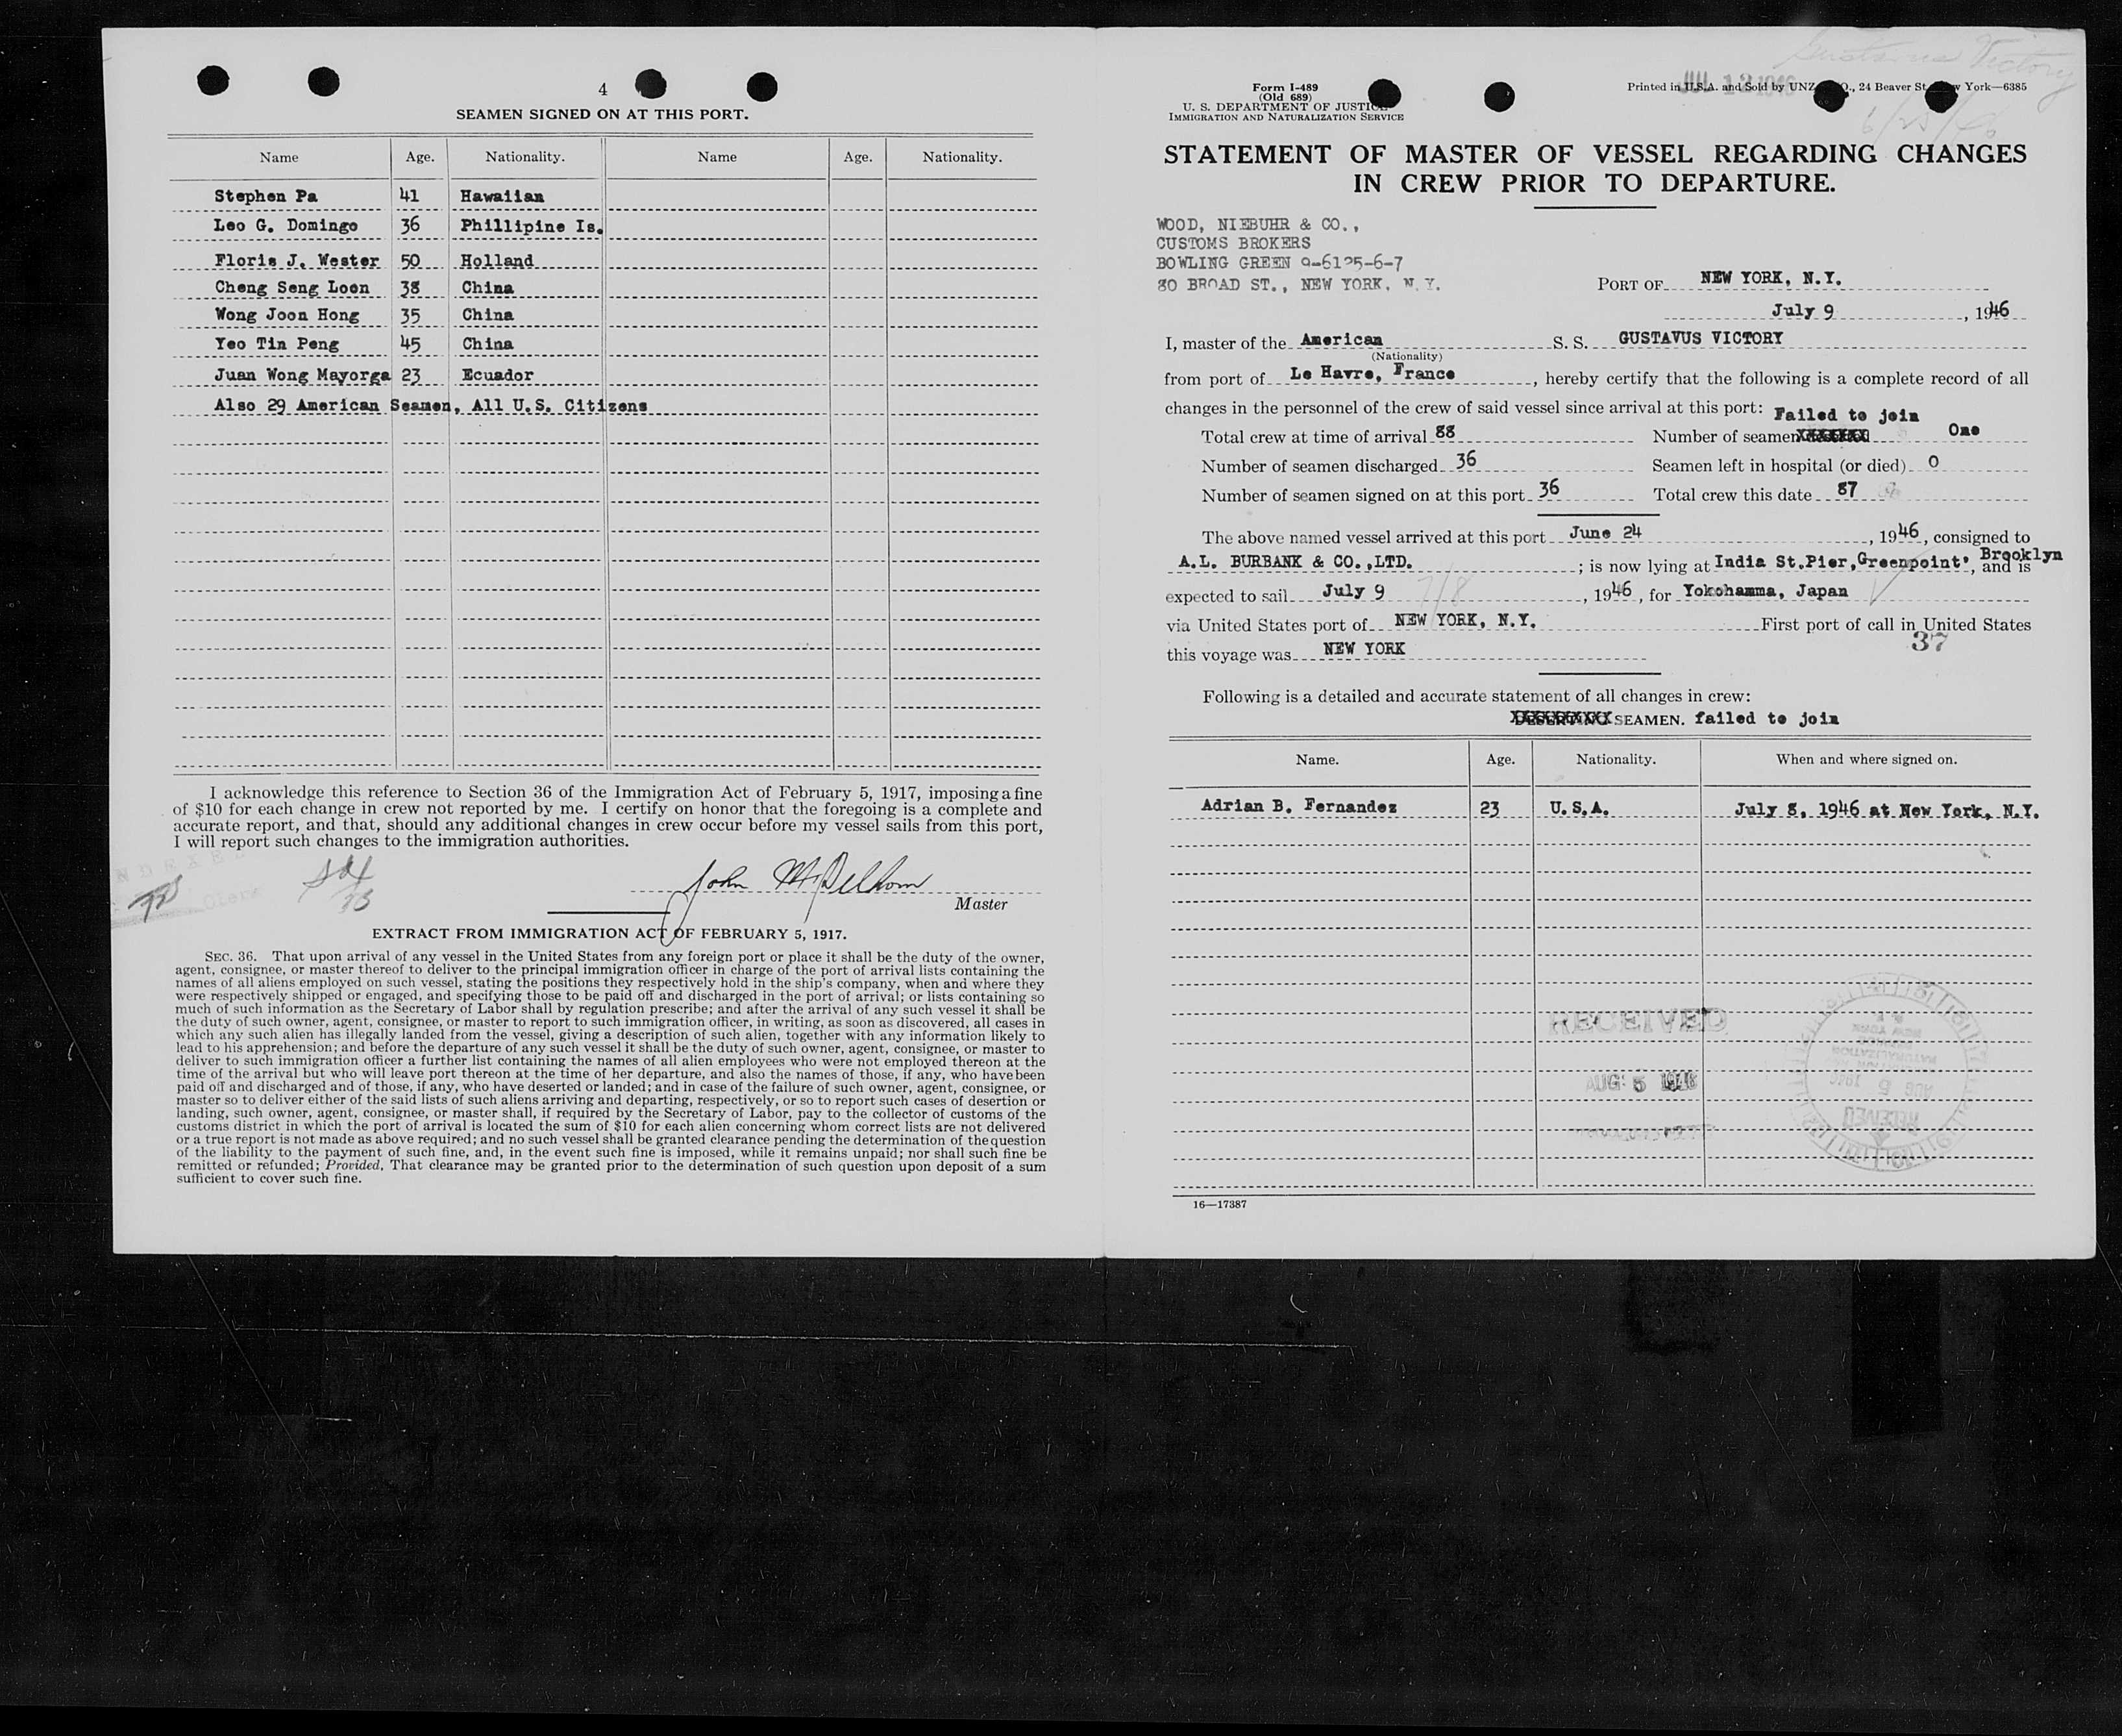 4
SEAMEN SIGNED ON AT THIS PORT.
Name Age. Nationality. Name Age. Nationality.
Stephen Pa 41 Hawaiian
Leo G. Domingo 36 Phillipine Is.
Floris J. Wester 50 Holland
Cheng Seng Loon 38 China
Wong Joon Hong 35 China
Yeo Tin Peng 45 China
Juan Wong Mayorga 23 Ecuador
Also 29 American Seamen, All U.S. Citizens
I acknowledge this reference to Section 36 of the Immigration Act of February 5, 1917, imposing a fine
of $10 for each change in crew not reported by me. I certify on honor that the foregoing is a complete and
accurate report, and that, should any additional changes in crew occur before my vessel sails from this port,
I will report such changes to the immigration authorities.
John M.
Master
EXTRACT FROM IMMIGRATION ACT OF FEBRUARY 5, 1917.
SEC. 36. That upon arrival of any vessel in the United States from any foreign port or place it shall be the duty of the owner,
agent, consignee, or master thereof to deliver to the principal immigration officer in charge of the port of arrival lists containing the
names of all aliens employed on such vessel, stating the positions they respectively hold in the ship's company, when and where they
were respectively shipped or engaged, and specifying those to be paid off and discharged in the port of arrival; or lists containing so
much of such information as the Secretary of Labor shall by regulation prescribe; and after the arrival of any such vessel it shall be
the duty of such owner, agent, consignee, or master to report to such immigration officer, in writing, as soon as discovered, all cases in
which any such alien has illegally landed from the vessel, giving a description of such alien, together with any information likely to
lead to his apprehension; and before the departure of any such vessel it shall be the duty of such owner, agent, consignee, or master to
deliver to such immigration officer a further list containing the names of all alien employees who were not employed thereon at the
time of the arrival but who will leave port thereon at the time of her departure, and also the names of those, if any, who have been
paid off and discharged and of those, if any, who have deserted or landed; and in case of the failure of such owner, agent, consignee, or
master so to deliver either of the said lists of such aliens arriving and departing, respectively, or so to report such cases of desertion or
landing, such owner, agent, consignee, or master shall, if required by the Secretary of Labor, pay to the collector of customs of the
customs district in which the port of arrival is located the sum of $10 for each alien concerning whom correct lists are not delivered
or a true report is not made as above required; and no such vessel shall be granted clearance pending the determination of the question
of the liability to the payment of such fine, and, in the event such fine is imposed, while it remains unpaid; nor shall such fine be
remitted or refunded; Provided, That clearance may be granted prior to the determination of such question upon deposit of a sum
sufficient to cover such fine.
Form I-489
(Old 689)
U. S. DEPARTMENT OF JUSTICE
IMMIGRATION AND NATURALIZATION SERVICE
Printed in U.S.A. and Sold by UNZ 24 Beaver St. York—6385
STATEMENT OF MASTER OF VESSEL REGARDING CHANGES
IN CREW PRIOR TO DEPARTURE.
WOOD, NIEBUHR & CO.,
CUSTOMS BROKERS
BOWLING GREEN 9-6125-6-7
80 BROAD ST., NEW YORK, N.Y.
PORT OF NEW YORK, N.Y.
July 9, 1946
I, master of the American S. S. GUSTAVUS VICTORY
(Nationality)
from port of Le Havre, France, hereby certify that the following is a complete record of all
changes in the personnel of the crew of said vessel since arrival at this port: Failed to join
Total crew at time of arrival 88 Number of seamen One
Number of seamen discharged 36 Seamen left in hospital (or died) 0
Number of seamen signed on at this port 36 Total crew this date 87
The above named vessel arrived at this port June 24, 1946, consigned to
A.L. BURBANK & CO.,LTD.; is now lying at India St.Pier,Greenpoint, Brooklyn, and is
expected to sail July 9 7/8, 1946, for Yokohamma, Japan
via United States port of NEW YORK, N.Y. First port of call in United States
this voyage was NEW YORK
37
Following is a detailed and accurate statement of all changes in crew:
SEAMEN. failed to join
Name. Age. Nationality. When and where signed on.
Adrian B. Fernandez 23 U.S.A. July 8, 1946 at New York, N.Y.
RECEIVED
AUG 5 1946
16—17387